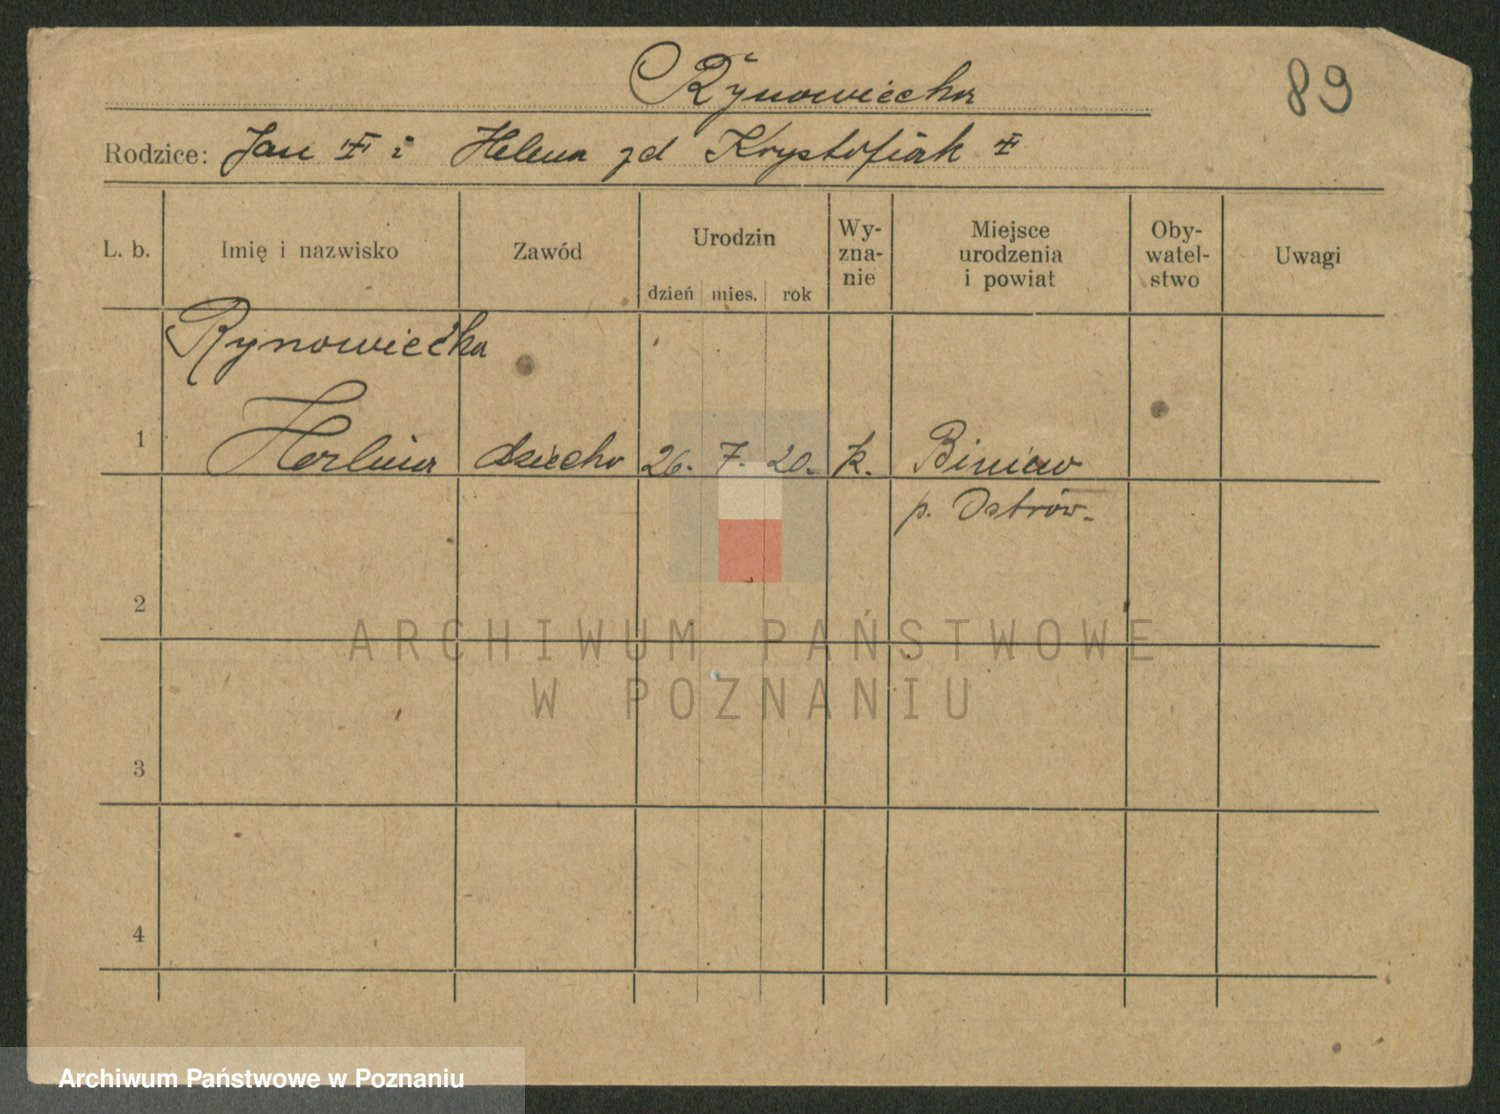 Rynowiecka
89
Rodzice: Jan i Helena zd Krystofiak
L. b.
Imię i nazwisko
Zawód
Urodzin
dzień mies. rok
Wy-
zna-
nie
Miejsce
urodzenia
i powiat
Oby-
watel-
stwo
Uwagi
Rynowiecka
1 dziecko 26. 7. 20. k. Biniew
p. Ostrów.
2
3
4
ARCHIWUM PAŃSTWOWE
W POZNANIU
Archiwum Państwowe w Poznaniu